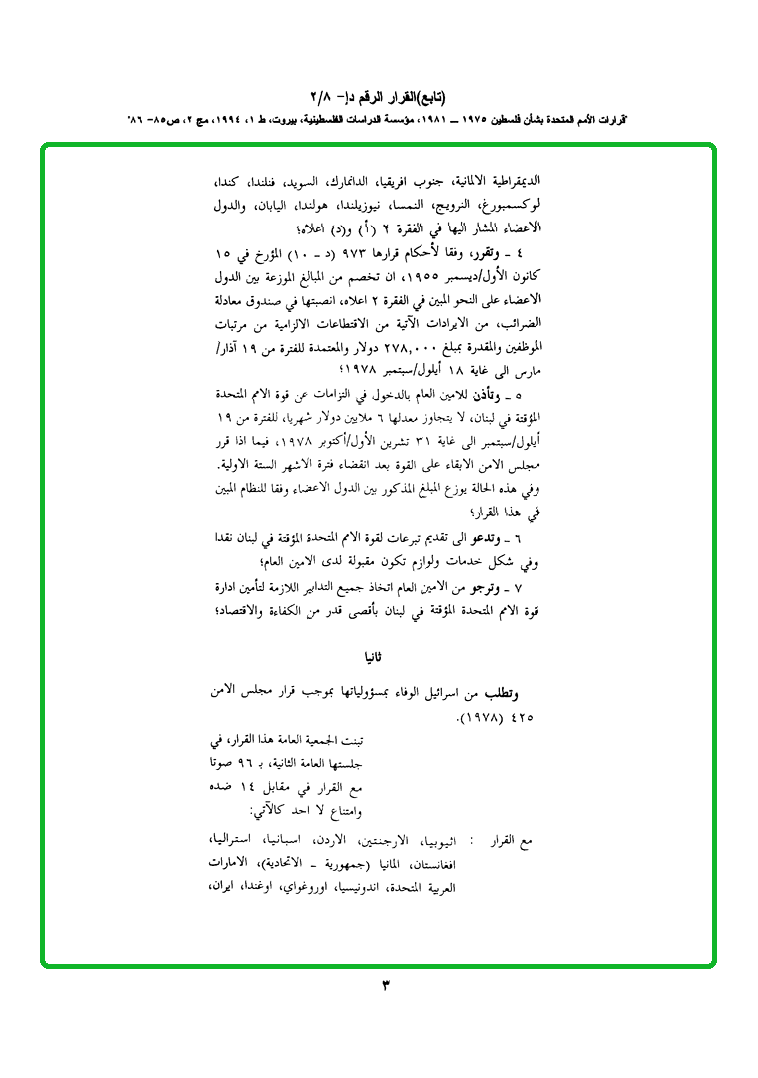 (تابع)القرار الرقم دإ- ٢/٨
"قرارات الأمم المتحدة بشأن فلسطين ١٩٧٥ ــ ١٩٨١، مؤسسة الدراسات الفلسطينية، بيروت، ط ١، ١٩٩٤، مج ٢، ص٨٥- ٨٦"
الديمقراطية الالمانية، جنوب افريقيا، الدانمارك، السويد، فنلندا، كندا،
لوكسمبورغ، النرويج، النمسا، نيوزيلندا، هولندا، اليابان، والدول
الاعضاء المشار اليها في الفقرة ٢ (أ) و(د) اعلاه؛
٤ ـ وتقرر، وفقا لأحكام قرارها ٩٧٣ (د ـ ١٠) المؤرخ في ١٥
كانون الأول/ديسمبر ١٩٥٥، ان تخصم من المبالغ الموزعة بين الدول
الاعضاء على النحو المبين في الفقرة ٢ اعلاه، انصبتها في صندوق معادلة
الضرائب، من الايرادات الآتية من الاقتطاعات الالزامية من مرتبات
الموظفين والمقدرة بمبلغ ٢٧٨,٠٠٠ دولار والمعتمدة للفترة من ١٩ آذار/
مارس الى غاية ١٨ أيلول/سبتمبر ١٩٧٨؛
٥ ـ وتأذن للامين العام بالدخول في التزامات عن قوة الامم المتحدة
المؤقتة في لبنان، لا يتجاوز معدلها ٦ ملايين دولار شهريا، للفترة من ١٩
أيلول/سبتمبر الى غاية ٣١ تشرين الأول/أكتوبر ١٩٧٨، فيما اذا قرر
مجلس الامن الابقاء على القوة بعد انقضاء فترة الاشهر الستة الاولية.
وفي هذه الحالة يوزع المبلغ المذكور بين الدول الاعضاء وفقا للنظام المبين
في هذا القرار؛
٦ ـ وتدعو الى تقديم تبرعات لقوة الامم المتحدة المؤقتة في لبنان نقدا
وفي شكل خدمات ولوازم تكون مقبولة لدى الامين العام؛
٧ ـ وترجو من الامين العام اتخاذ جميع التدابير اللازمة لتأمين ادارة
قوة الامم المتحدة المؤقتة في لبنان بأقصى قدر من الكفاءة والاقتصاد؛
ثانيا
وتطلب من اسرائيل الوفاء بمسؤولياتها بموجب قرار مجلس الامن
٤٢٥ (١٩٧٨).
تبنت الجمعية العامة هذا القرار، في
جلستها العامة الثانية، بـ ٩٦ صوتا
مع القرار في مقابل ١٤ ضده
وامتناع لا احد كالآتي:
مع القرار : اثيوبيا، الارجنتين، الاردن، اسبانيا، استراليا،
افغانستان، المانيا (جمهورية ـ الاتحادية)، الامارات
العربية المتحدة، اندونيسيا، اوروغواي، اوغندا، ايران،
٣